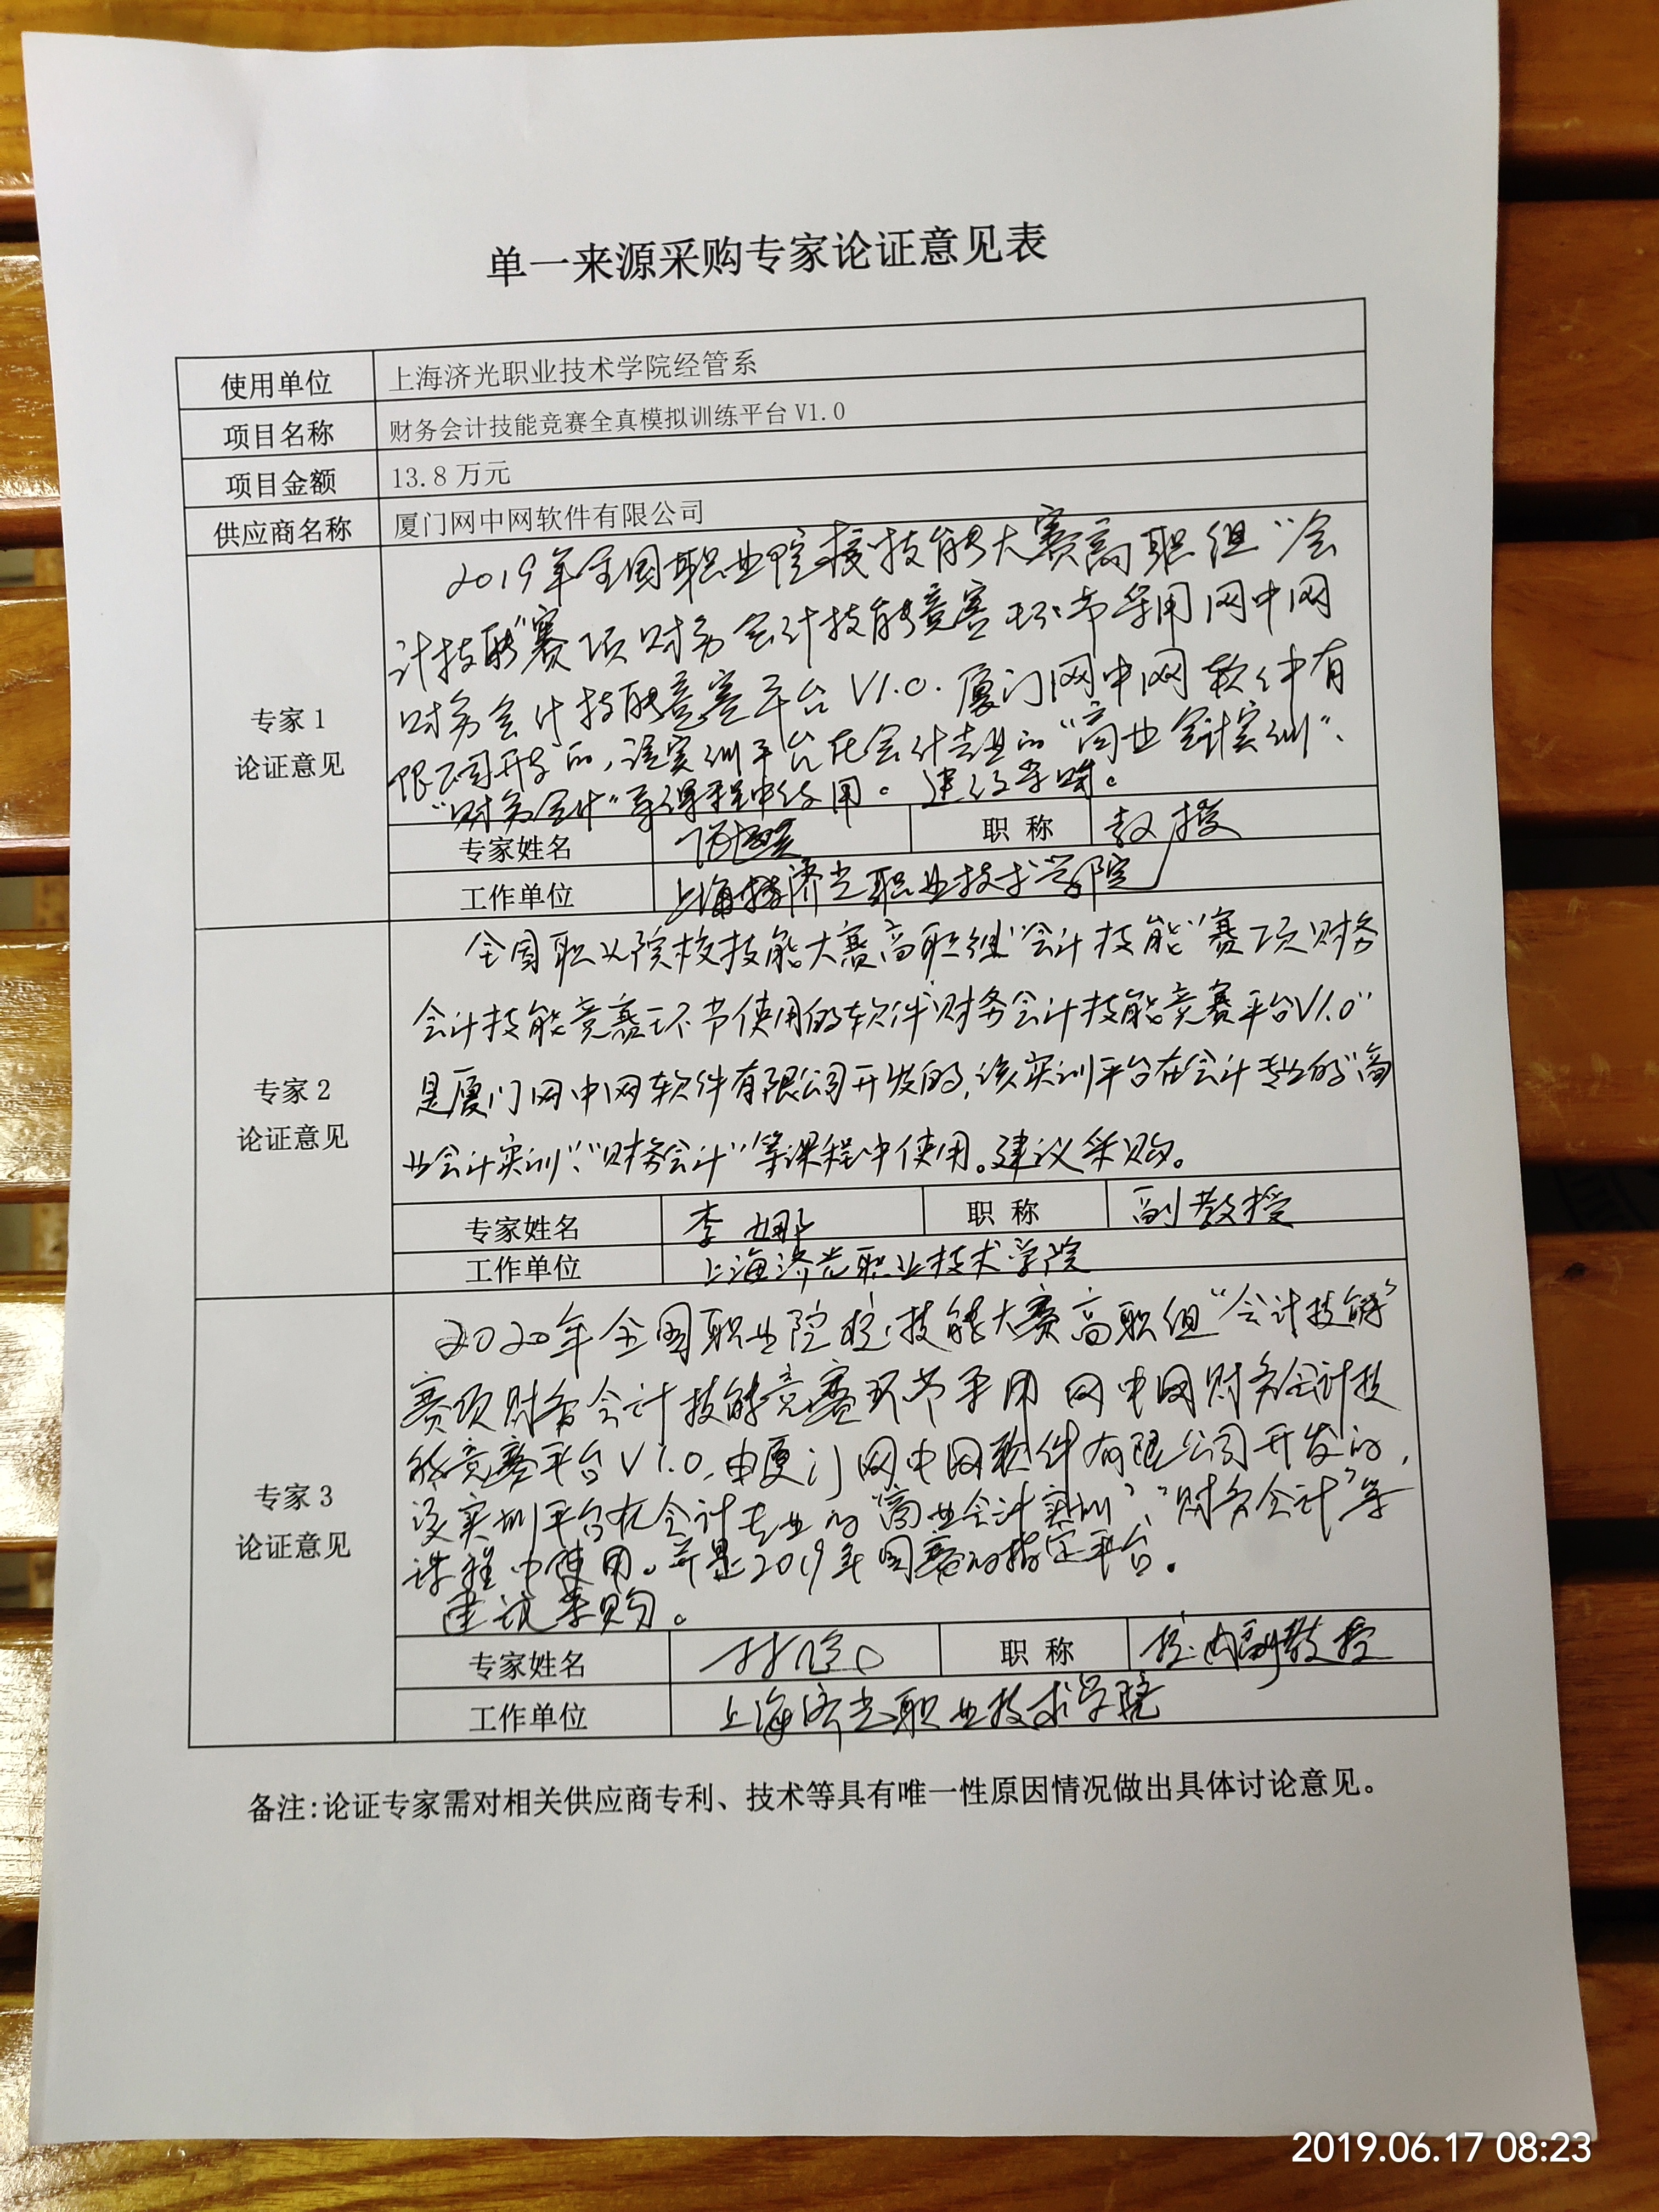 单一来源采购专家论证意见表
使用单位 上海济光职业技术学院经管系
项目名称 财务会计技能竞赛全真模拟训练平台V1.0
项目金额 13.8万元
供应商名称 厦门网中网软件有限公司
专家1
论证意见
2019年全国职业院校技能大赛高职组“会
计技能”赛项财务会计技能竞赛环节采用网中网
财务会计技能竞赛平台V1.0.厦门网中网软件有
限公司开发的,该实训平台在会计专业的“商业会计实训”、
“财务会计”等课程中使用。建议采购。
专家姓名 职称 教授
工作单位 上海济光职业技术学院
专家2
论证意见
全国职业院校技能大赛高职组“会计技能”赛项财务
会计技能竞赛环节使用的软件“财务会计技能竞赛平台V1.0”
是厦门网中网软件有限公司开发的,该实训平台在会计专业的“商
业会计实训”、“财务会计”等课程中使用。建议采购。
专家姓名 李娜 职称 副教授
工作单位 上海济光职业技术学院
专家3
论证意见
2020年全国职业院校技能大赛高职组“会计技能”
赛项财务会计技能竞赛环节采用网中网财务会计技
能竞赛平台V1.0,由厦门网中网软件有限公司开发的,
该实训平台在会计专业的“商业会计实训”、“财务会计”等
课程中使用。并是2019年国赛的指定平台。
建议采购。
专家姓名 职称 校内副教授
工作单位 上海济光职业技术学院
备注:论证专家需对相关供应商专利、技术等具有唯一性原因情况做出具体讨论意见。
2019.06.17 08:23